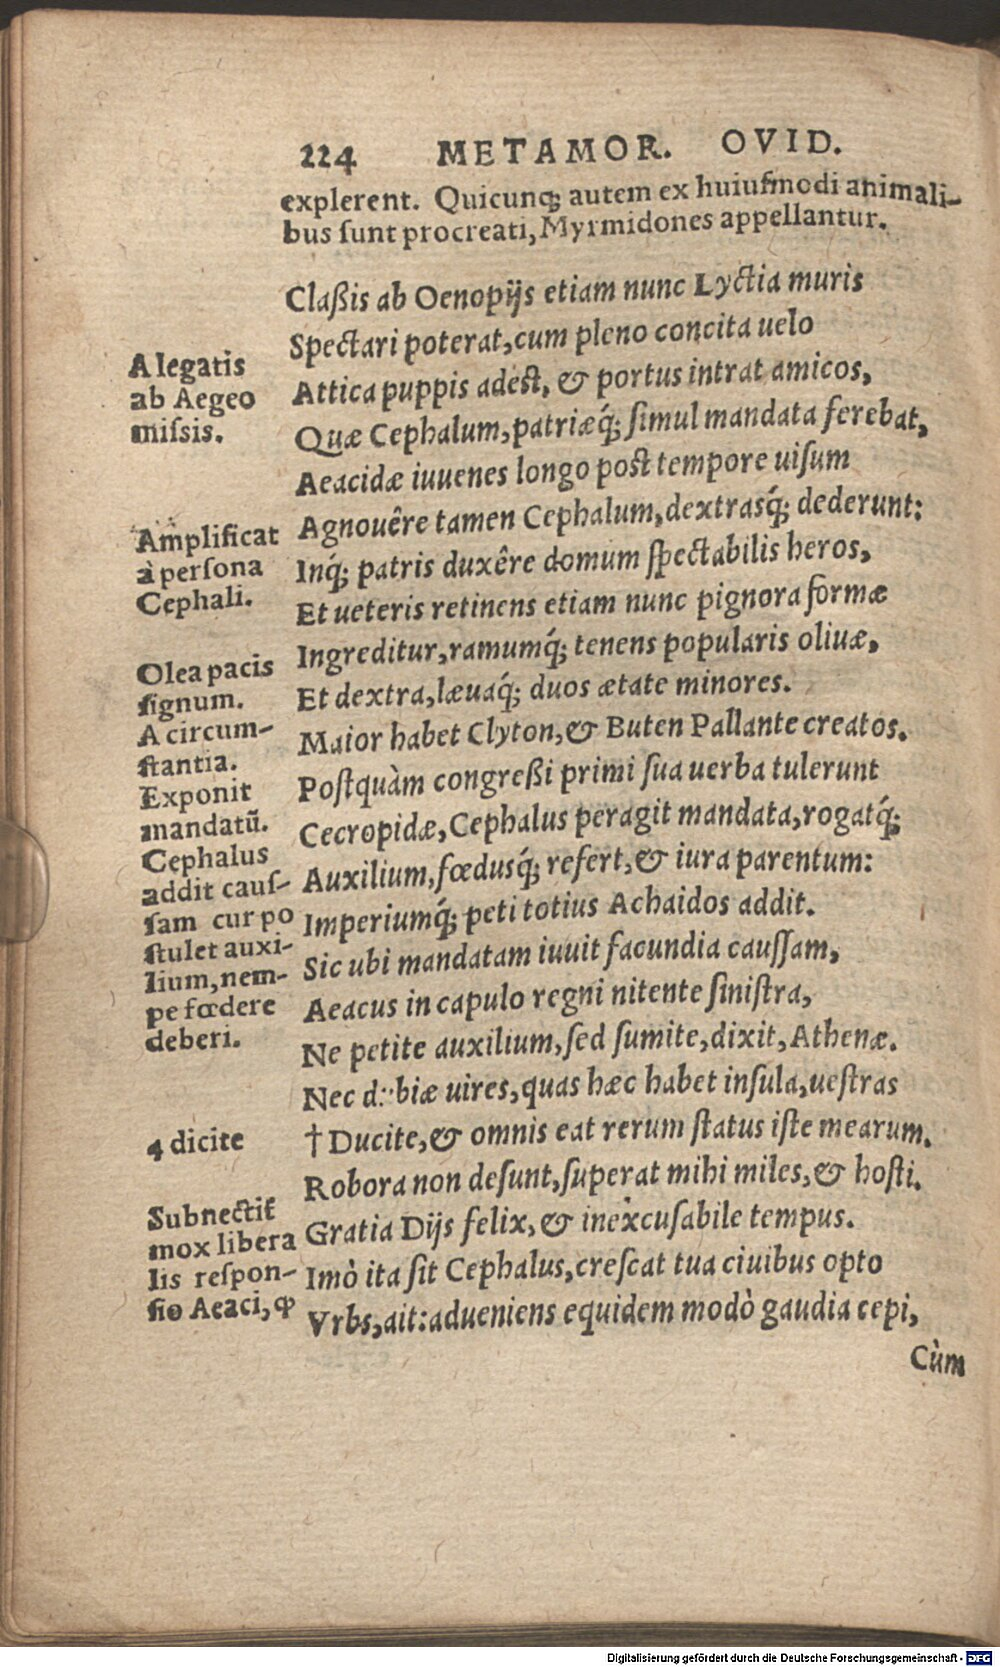 224 METAMOR. OVID.
explerent. Quicunq; autem ex huiuſmodi animali-
bus ſunt procreati, Myrmidones appellantur.
Claßis ab Oenopijs etiam nunc Lyctia muris
Spectari poterat, cum pleno concita uelo
Attica puppis adest, & portus intrat amicos,
Quæ Cephalum, patriæq́; ſimul mandata ferebat,
Aeacidæ iuuenes longo post tempore uiſum
Agnouêre tamen Cephalum, dextrasq́; dederunt:
Inq́; patris duxêre domum ſpectabilis heros,
Et ueteris retinens etiam nunc pignora formæ
Ingreditur, ramumq́; tenens popularis oliuæ,
Et dextra, læuaq́; duos ætate minores.
Maior habet Clyton, & Buten Pallante creatos.
Poſtquàm congreßi primi ſua uerba tulerunt
Cecropidæ, Cephalus peragit mandata, rogatq́;
Auxilium, fœdusq́; refert, & iura parentum:
Imperiumq́; peti totius Achaidos addit.
Sic ubi mandatam iuuit facundia cauſſam,
Aeacus in capulo regni nitente ſiniſtra,
Ne petite auxilium, ſed ſumite, dixit, Athenæ.
Nec d biæ uires, quas hæc habet inſula, ueſtras
† Ducite, & omnis eat rerum ſtatus iſte mearum.
Robora non deſunt, ſuperat mihi miles, & hoſti.
Gratia Dijs felix, & inexcuſabile tempus.
Imò ita ſit Cephalus, creſcat tua ciuibus opto
Vrbs, ait: adueniens equidem modò gaudia cepi,
Cùm
A legatis
ab Aegeo
miſsis.
Amplificat
à perſona
Cephali.
Olea pacis
ſignum.
A circum-
ſtantia.
Exponit
mandatũ.
Cephalus
addit cauſ-
ſam cur po
ſtulet auxi-
lium, nem-
pe fœdere
deberi.
4 dicite
Subnectit
mox libera
lis reſpon-
ſio Aeaci, ꝙ